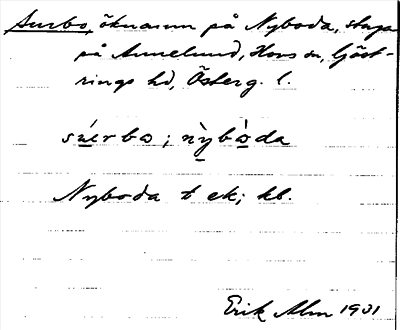 Surbo, öknamn på Nyboda, stuga
på Annelund, Hovs sn, Göst-
rings hd, Österg. l.
súerbω; nỳbὼda
Nyboda t ek; kb.
Erik Alm 1931